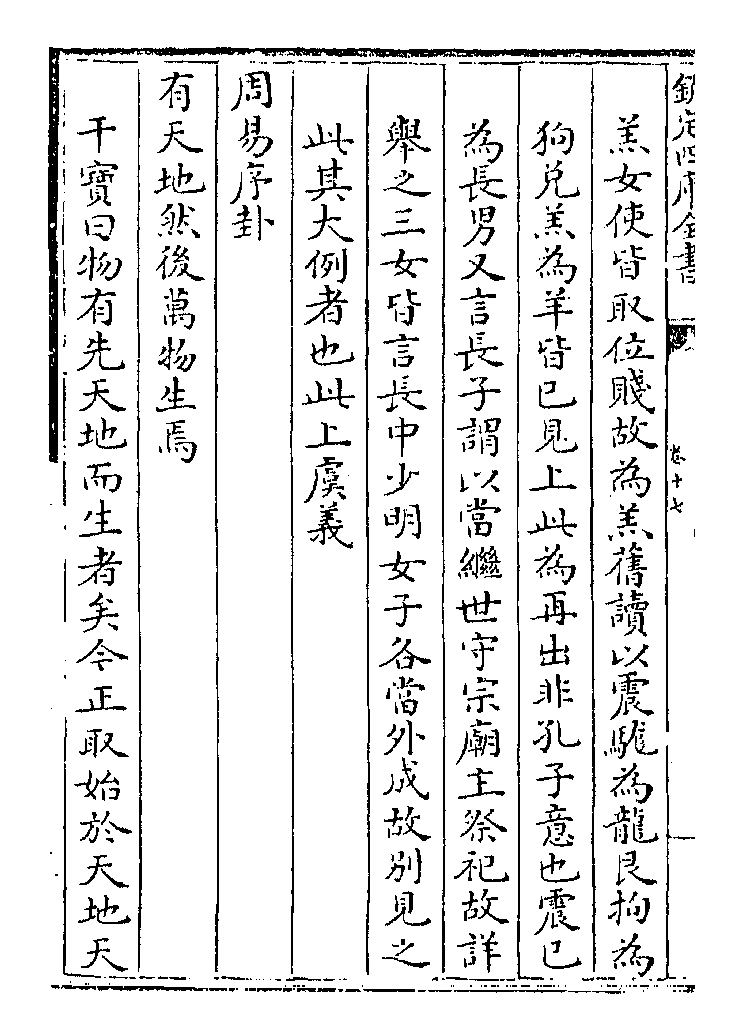 欽定四庫全書
卷十七
羔女使皆取位賤故為羔舊讀以震駹為龍艮拘為
狗兌羔為羊皆已見上此為再出非孔子意也震已
為長男又言長子謂以當繼世守宗廟主祭祀故詳
舉之三女皆言長中少明女子各當外成故别見之
此其大例者也此上虞義
周易序卦
有天地然後萬物生焉
干寶曰物有先天地而生者矣今正取始於天地天